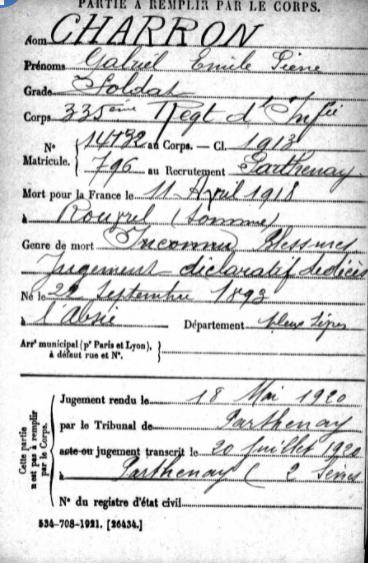 PARTIE À REMPLIR PAR LE CORPS.
Nom CHARRON
Prénoms Gabriel Emile Pierre
Grade Soldat
Corps 335ème Regt d'Infie
N° Matricule. { 14732 au Corps. — Cl. 1913
796 au Recrutement Parthenay
Mort pour la France le 11 Avril 1918
à Rouvrel (Somme)
Genre de mort Inconnu Blessures
Jugement déclaratif de décès
Né le 22 Septembre 1893
à l'Absie Département Deux Sèvres
Arrt municipal (pr Paris et Lyon), à défaut rue et N°.
Cette partie n'est pas à remplir par le Corps.
Jugement rendu le 18 Mai 1920
par le Tribunal de Parthenay
acte ou jugement transcrit le 20 Juillet 1920
à Parthenay (2 Sèvres
N° du registre d'état civil
534-708-1921. [26434.]